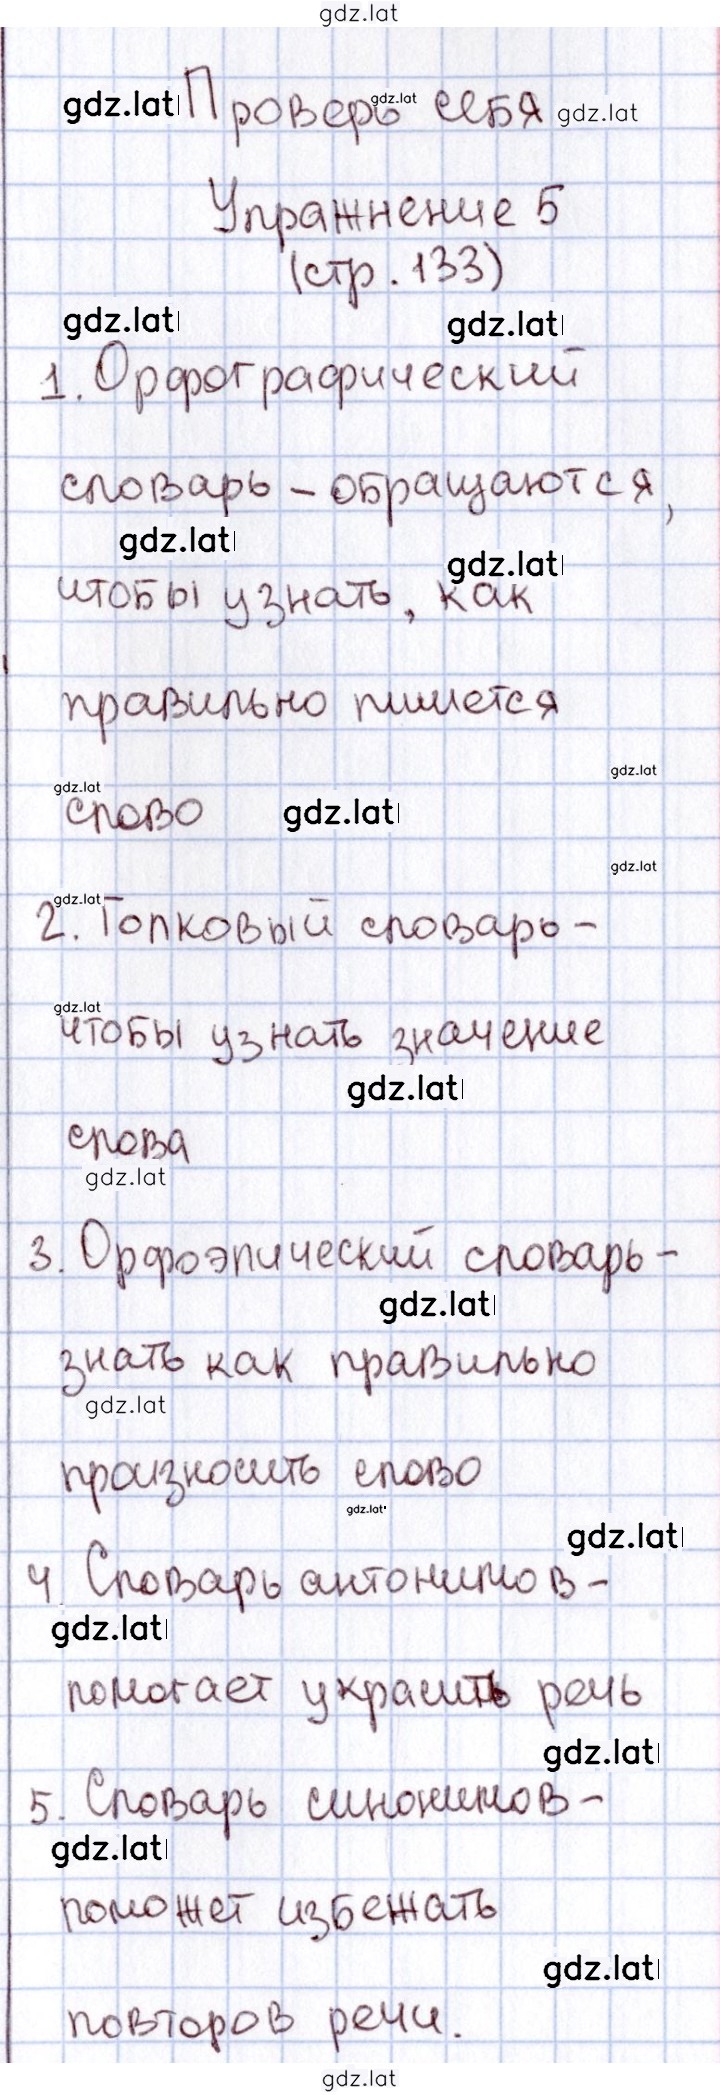 gdz.lat
gdz.lat Проверь gdz.lat себя gdz.lat
Упражнение 5
(стр. 133)
gdz.lat gdz.lat
1. Орфографический
словарь – обращаются,
gdz.lat gdz.lat
чтобы узнать, как
правильно пишется
gdz.lat gdz.lat
слово gdz.lat
gdz.lat
gdz.lat
2. Толковый словарь –
gdz.lat
чтобы узнать значение
gdz.lat
слова
gdz.lat
3. Орфоэпический словарь –
gdz.lat
знать как правильно
gdz.lat
произносить слово
gdz.lat gdz.lat
4. Словарь антонимов –
gdz.lat
помогает украсить речь
gdz.lat
5. Словарь синонимов –
gdz.lat
поможет избежать
gdz.lat
повторов речи.
gdz.lat